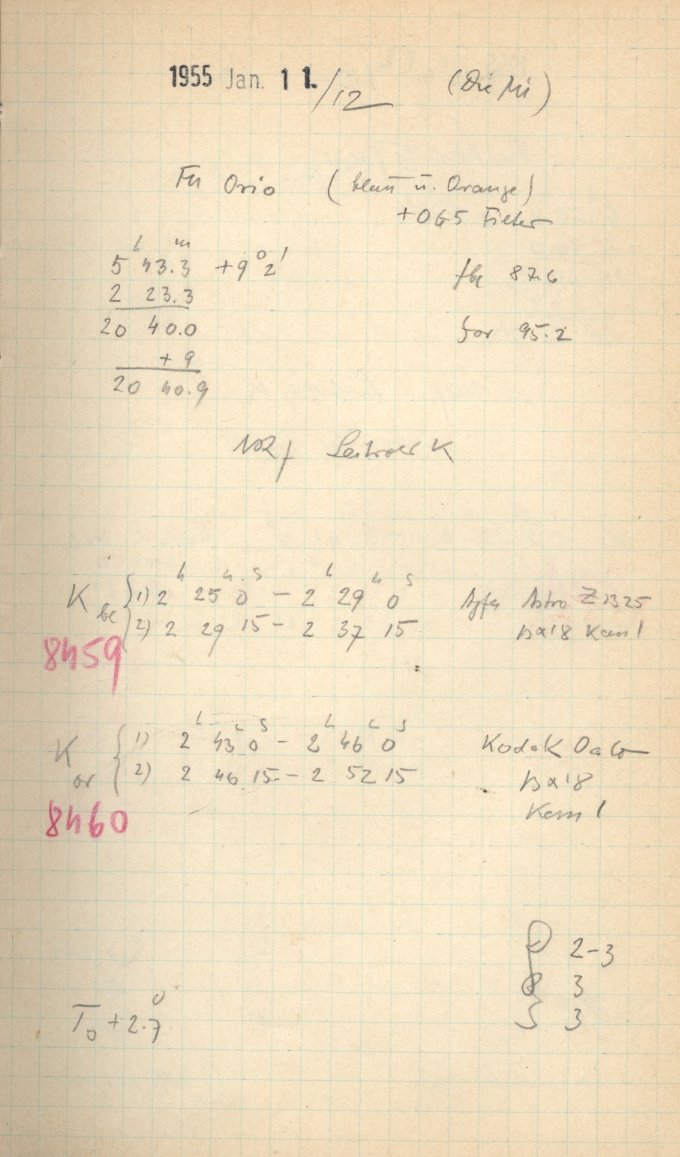 1955 Jan. 11./12 (Die Mi)
Fu Orio (blau u. Orange)
+OG5 Filter
5 h 43.3 m +9° 2'
2 23.3
20 40.0
+9
20 40.9
fbl 87.6
for 95.2
K
K bl { 1) 2 h 25 m 0 s – 2 h 29 m 0 s Agfa Astro Z 1325
2) 2 29 15 – 2 37 15 13x18 Kam I
8459
K or { 1) 2 h 43 0 s – 2 h 46 0 s Kodak OaG
2) 2 46 15 – 2 52 15 13x18
8460 Kam I
2-3
3
T0 +2.7° 3